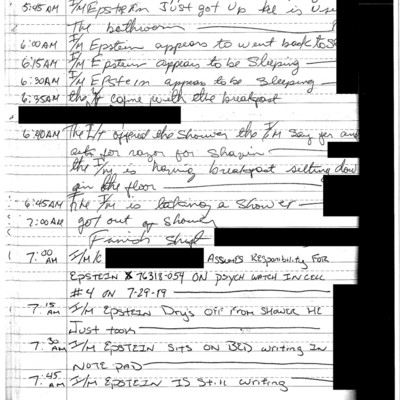 5:45AM I/M EPSTEIN Just got up he is usi
The bathroom
6:00AM I/M Epstein appears to went back to S
6:15AM I/M Epstein appears to be sleeping
6:30AM I/M EPStein appears to be sleeping
6:35AM the come with the breakfast
6:40AM The offered the shower the I/M say yes and
ask for razor for shavin
the I/M is having breakfast sitting dow
on the floor
6:45AM the I/M is taking a shower
7:00AM got out of shower
Finish shift
7:00 AM I/M K ASSUMES RESPONSIBILITY FOR
EPSTEIN 76318-054 ON PSYCH WATCH IN CELL
#4 ON 7-29-19
7:15 AM I/M EPSTEIN DRYS OFF FROM SHOWER HE
Just took
7:30 AM I/M EPSTEIN SITS ON BED WRITING IN
NOTE PAD
7:45 AM I/M EPSTEIN IS Still writing